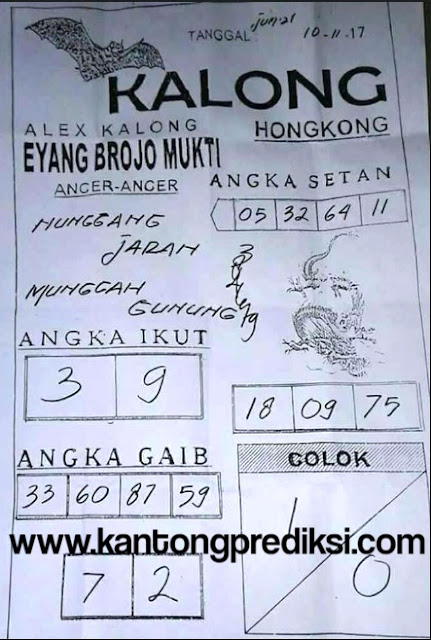 TANGGAL : jum'at 10-11-17
KALONG
ALEX KALONG
HONGKONG
EYANG BROJO MUKTI
ANCER-ANCER
ANGKA SETAN
05 32 64 11
NUNGGANG
JARAN
MUNGGAH
GUNUNG
ANGKA IKUT
3 9
18 09 75
ANGKA GAIB
COLOK
33 60 87 59
1
www.kantongprediksi.com
0
7 2